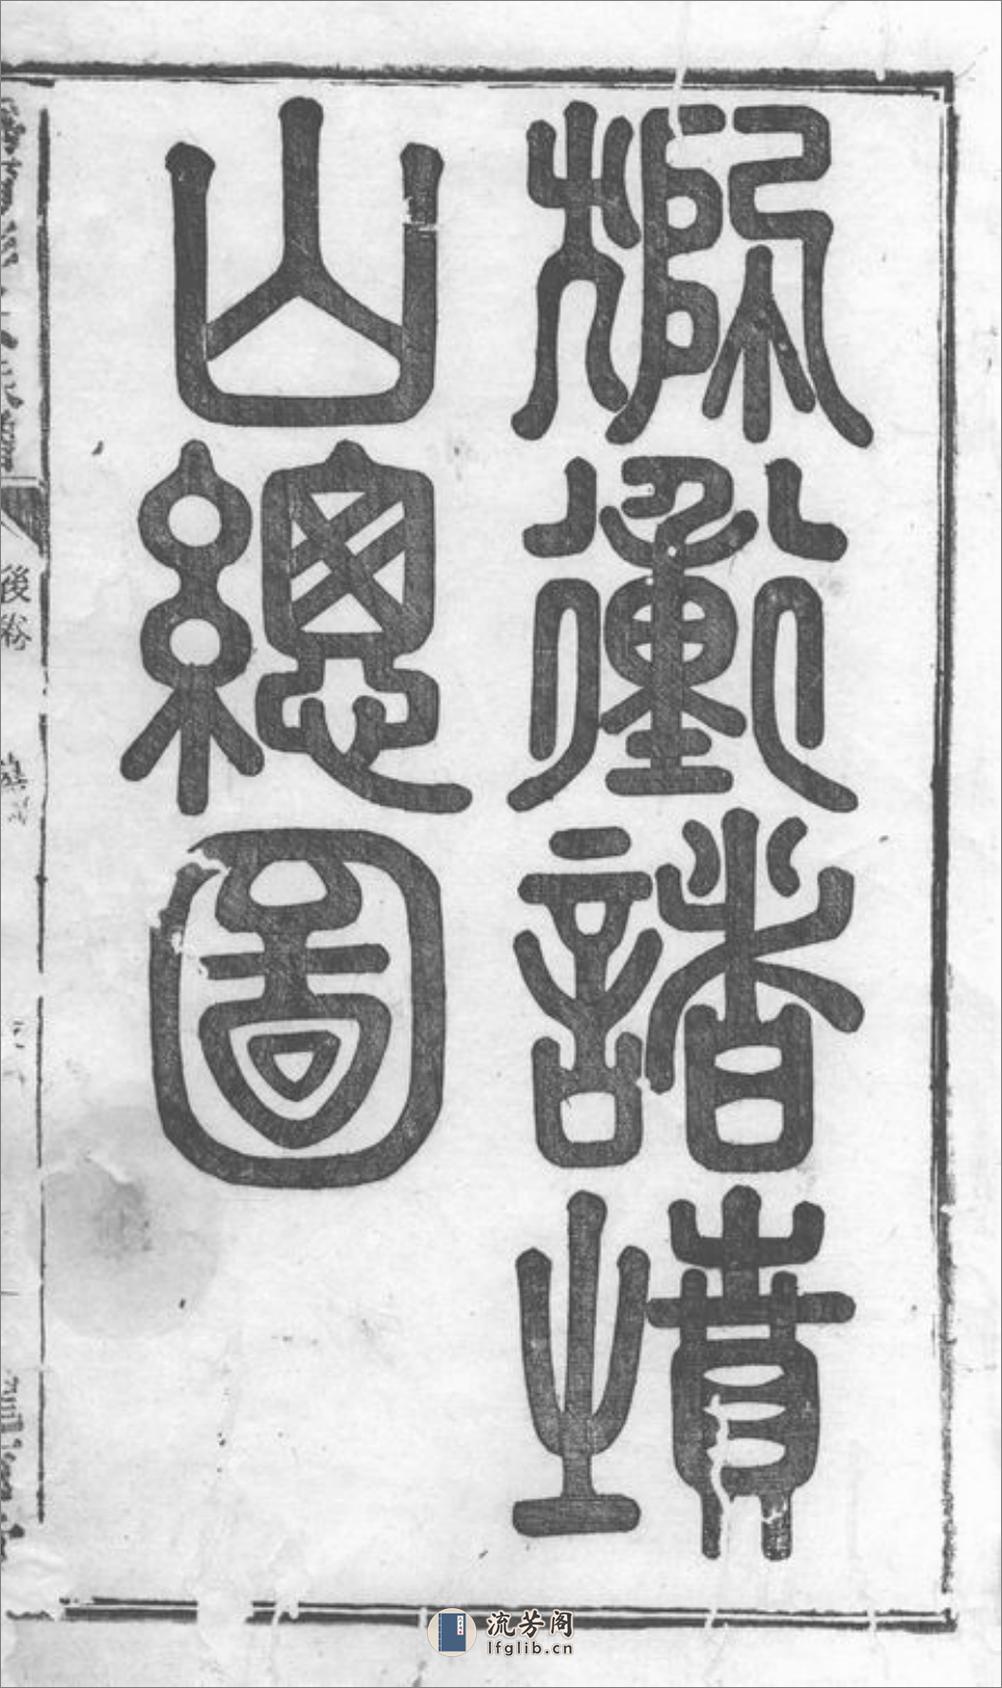 衡諸墳
山總圖
後裕
流芳阁
lfglib.cn